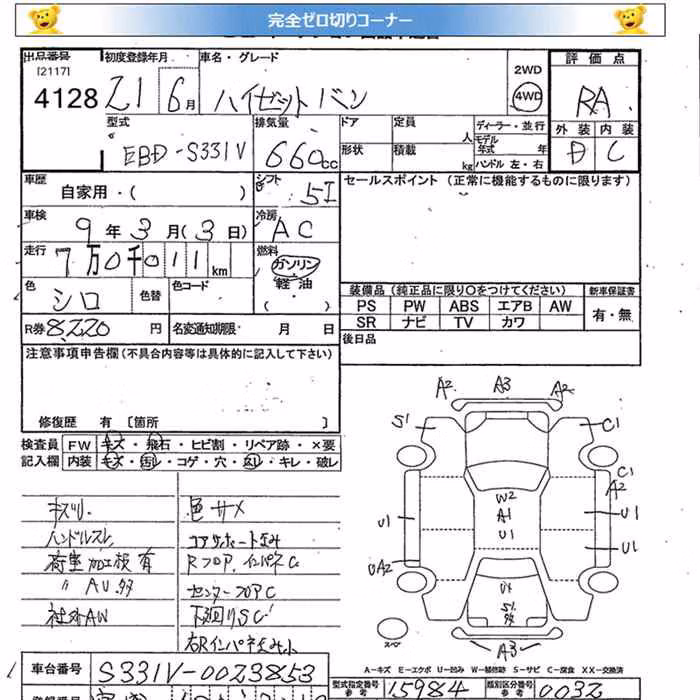 完全ゼロ切りコーナー
出品番号 初度登録年月 車名・グレード 評価点
[2117]
4128 21 6月 ハイゼットバン 2WD 4WD RA
型式 排気量 ドア 定員 ディーラー・並行 外装 内装
人 モデル年式 年
EBD-S331V 660cc 形状 積載 kg ハンドル 左・右 D C
車歴 シフト セールスポイント (正常に機能するものに限ります)
自家用・( ) 5I
車検 9年3月(3日) 冷房 AC
走行 7万0千011km 燃料 ガソリン
軽油
色 シロ 色替 色コード ・( )
装備品(純正品に限り○をつけてください) 新車保証書
PS PW ABS エアB AW 有・無
SR ナビ TV カワ
R券 8,220円 名変通知期限 月 日 後日品
注意事項申告欄(不具合内容等は具体的に記入して下さい)
修復歴 有 〔箇所 〕
検査員 FW キズ・飛石・ヒビ割・リペア跡・×要
記入欄 内装 キズ・汚れ・コゲ・穴・凹・キレ・破レ
キズ凹 色サメ
ハンドルスレ コアサポート歪み
荷室加工板有 Rフロア、インパネC
〃 AU.多 センターフロアC
社外AW 下廻りSC
右Rインパネ歪み
A2 A3 A2
S1 C1
C1
A2
W2
A1
U1 U1 U1
U1
UA2
U4
S1
スペア
A3
A-キズ E-エクボ U-凹み W-補修跡 S-サビ C-腐食 XX-交換済
車台番号 S331V-0023853 型式指定番号 15984 類別区分番号 0032
参考 参考
登録番号